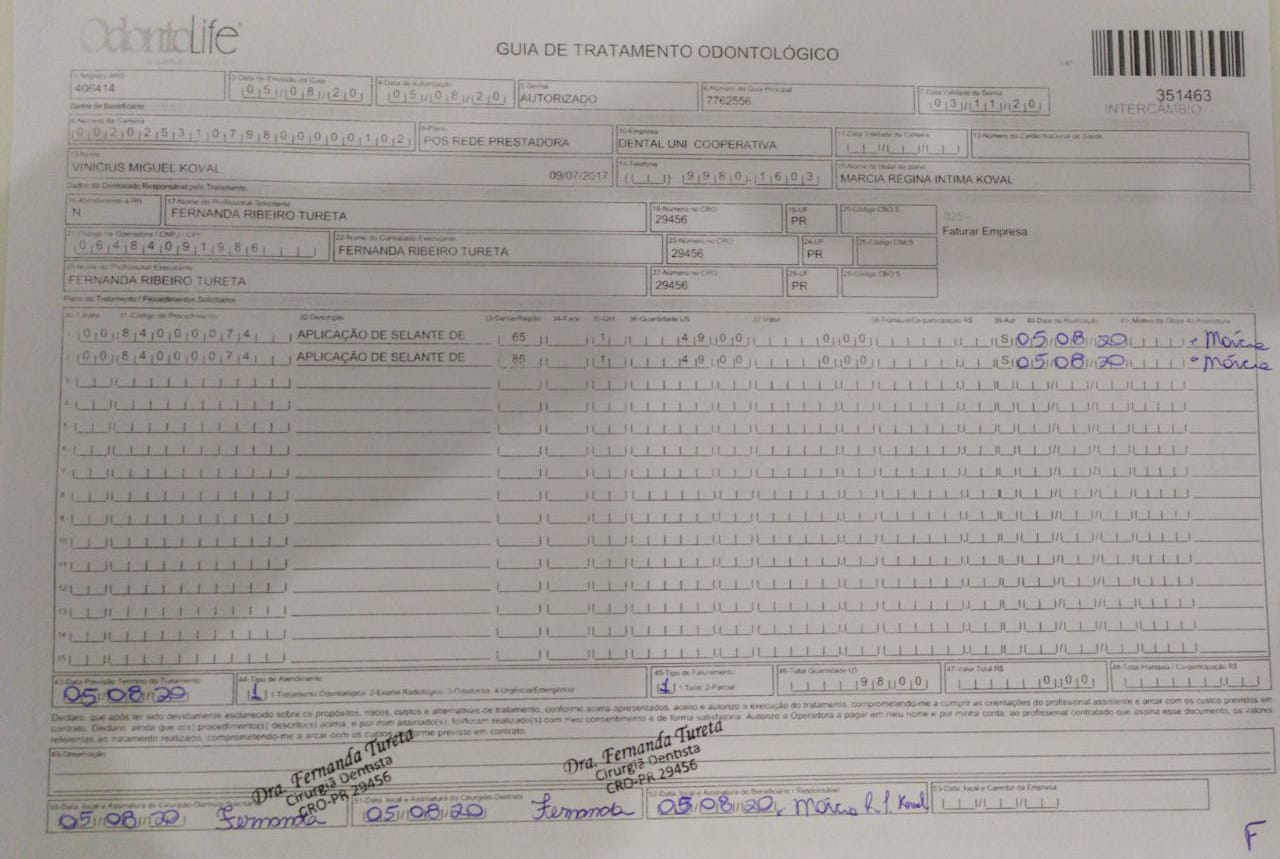 OdontoLife
GUIA DE TRATAMENTO ODONTOLÓGICO
351463
INTERCÂMBIO
1-Registro ANS 3-Data de Emissão da Guia 4-Data de Autorização 5-Senha 6-Número da Guia Principal 7-Data Validade da Senha
406414 05/08/20 05/08/20 AUTORIZADO 7762556 03/11/20
Dados do Beneficiário
8-Número da Carteira 9-Plano 10-Empresa 11-Data Validade da Carteira 12-Número do Cartão Nacional de Saúde
00202531079800000102 POS REDE PRESTADORA DENTAL UNI COOPERATIVA
13-Nome 14-Telefone 15-Nome do titular do plano
VINICIUS MIGUEL KOVAL 09/07/2017 ( ) 9980-1603 MARCIA REGINA INTIMA KOVAL
Dados do Contratado Responsável pelo Tratamento
16-Atendimento a RN 17-Nome do Profissional Solicitante 18-Número no CRO 19-UF 20-Código CBO S
N FERNANDA RIBEIRO TURETA 29456 PR
025 -
Faturar Empresa
21-Código na Operadora / CNPJ / CPF 22-Nome do Contratado Executante 23-Número no CRO 24-UF 25-Código CNES
06484091986 FERNANDA RIBEIRO TURETA 29456 PR
26-Nome do Profissional Executante 27-Número no CRO 28-UF 29-Código CBO S
FERNANDA RIBEIRO TURETA 29456 PR
Plano de Tratamento / Procedimentos Solicitados
30-Tabela 31-Código do Procedimento 32-Descrição 33-Dente/Região 34-Face 35-Qtd 36-Quantidade US 37-Valor 38-Franquia/Co-participação R$ 39-Aut 40-Data de Realização 41-Motivo da Glosa 42-Assinatura
1 00 84000074 APLICAÇÃO DE SELANTE DE 65 1 49,00 0,00 S 05/08/20 Márcia
2 00 84000074 APLICAÇÃO DE SELANTE DE 85 1 49,00 0,00 S 05/08/20 Márcia
3
4
5
6
7
8
9
10
11
12
13
14
15
43-Data Previsão Término do Tratamento 44-Tipo de Atendimento 45-Tipo de Faturamento 46-Total Quantidade US 47-Valor Total R$ 48-Total Franquia / Co-participação R$
05/08/20 1 1-Tratamento Odontológico 2-Exame Radiológico 3-Ortodontia 4-Urgência/Emergência 1 1-Total 2-Parcial 98,00 0,00
Declaro, que após ter sido devidamente esclarecido sobre os propósitos, riscos, custos e alternativas de tratamento, conforme acima apresentados, aceito e autorizo a execução do tratamento, comprometendo-me a cumprir as orientações do profissional assistente e arcar com os custos previstos em
contrato. Declaro, ainda que o(s) procedimento(s) descrito(s) acima, e por mim assinado(s), foi/foram realizado(s) com meu consentimento e de forma satisfatória. Autorizo a Operadora a pagar em meu nome e por minha conta, ao profissional contratado que assina esse documento, os valores
referentes ao tratamento realizado, comprometendo-me a arcar com os custos conforme previsto em contrato.
49-Observação
Dra. Fernanda Tureta
Cirurgiã Dentista
CRO-PR 29456
Dra. Fernanda Tureta
Cirurgiã Dentista
CRO-PR 29456
50-Data, local e Assinatura do Cirurgião-Dentista 51-Data, local e Assinatura do Cirurgião-Dentista 52-Data, local e Assinatura do Beneficiário / Responsável 53-Data, local e Carimbo da Empresa
05/08/20 Fernanda 05/08/20 Fernanda 05/08/20, Márcia R. I. Koval
F